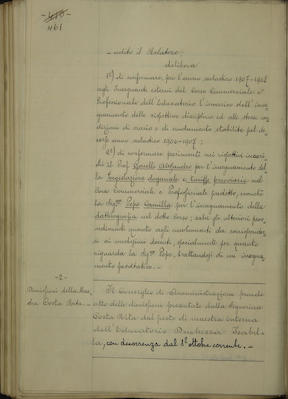 - 460 -
461
- udito il Relatore;
delibera
1°) di confermare, per l'anno scolastico 1907-1908
agli Insegnanti esterni del Corso Commerciale e
Professionale dell'Educatorio l'incarico dell'inse-
gnamento delle rispettive discipline ed alle stesse con-
dizioni di orario e di emolumento stabilite pel de-
corso anno scolastico 1906-1907;
2°) di confermare parimenti nei rispettivi incari-
chi il Prof. Alessandro per l'insegnamento del-
la Legislazione doganale e tariffe ferroviarie nel
Corso commerciale e Professionale predetto, nonchè
la Sig.na Pepe Camilla per l'insegnamento della
dattilografia nel detto Corso; salvi gli ulteriori prov-
vedimenti quanto agli emolumenti da corrispondere
ai medesimi docenti, specialmente per quanto
riguarda la Sig.na Pepe, trattandosi di un insegna-
mento facoltativo. -
- 2 -
Dimissioni della Mae-
stra Costa Rita. -
Il Consiglio di Amministrazione prende
atto delle dimissioni presentate dalla Signorina
Costa Rita dal posto di maestra interna
dell'Educatorio Duchessa Isabel-
la, con decorrenza dal 1° ottobre corrente. -